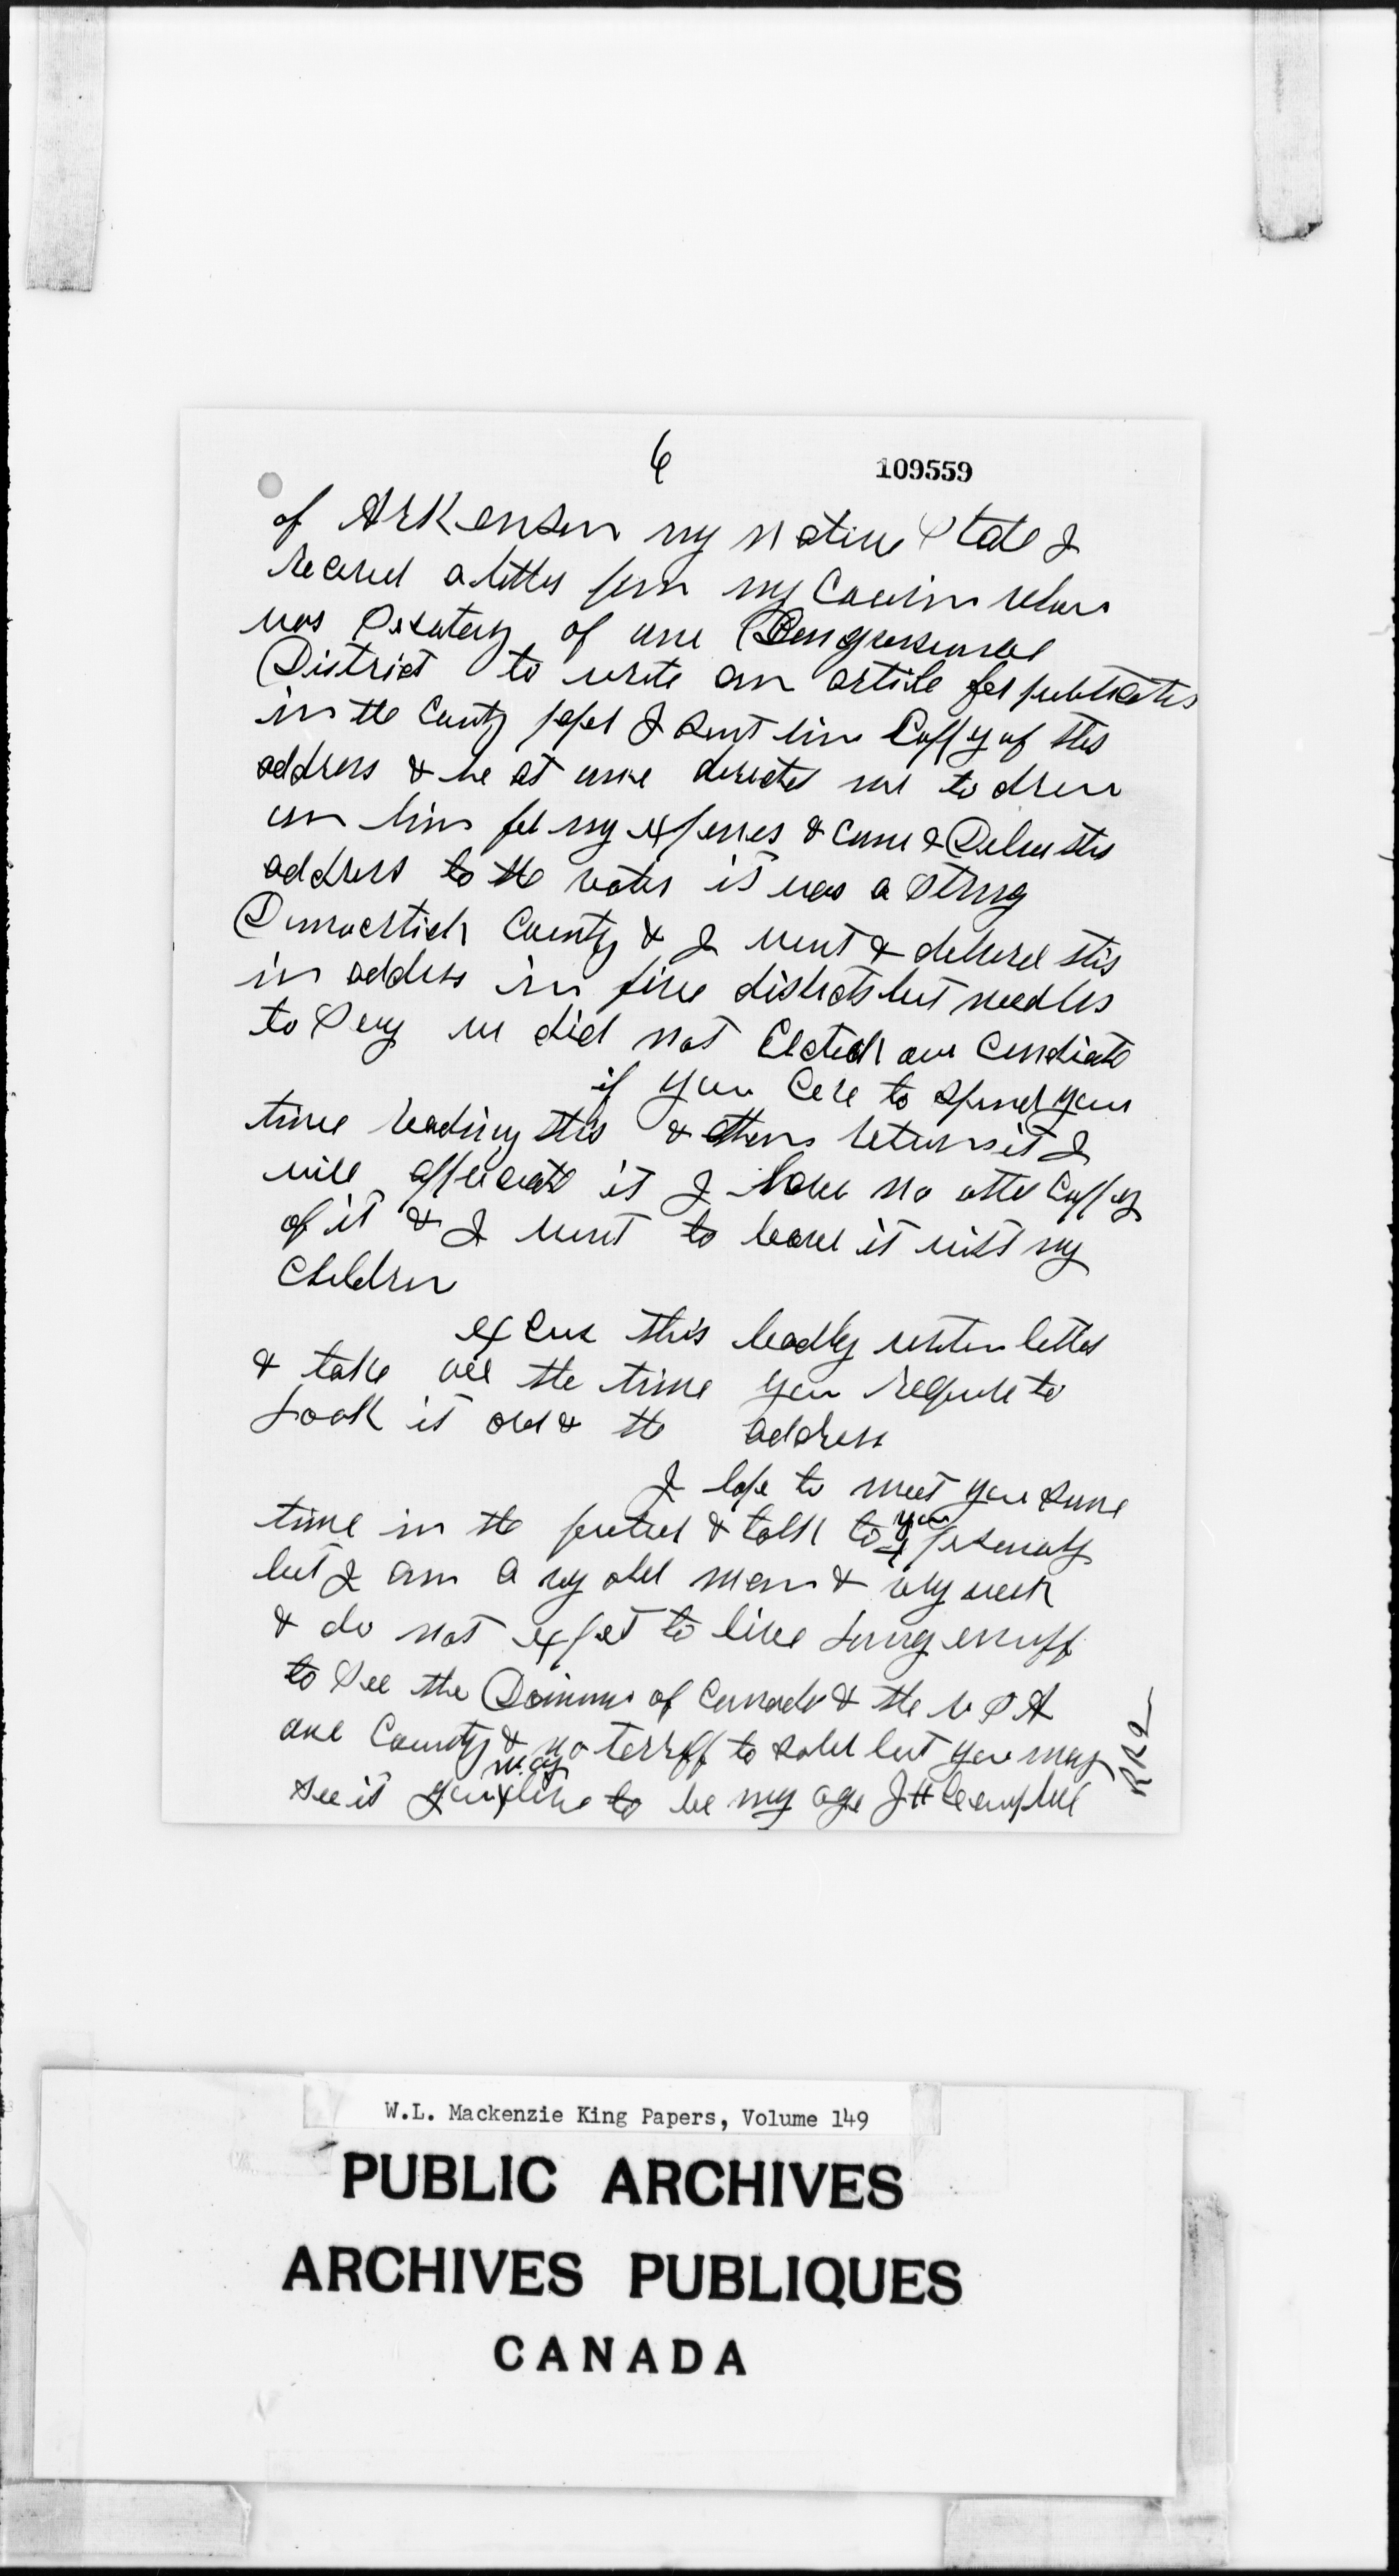 6
109559
of Arkensen my native State I
receved a letter from my Cousin whow
was Secatery of one Congressional
District to write an article for publication
in the County paper I sent him Coppy of this
address & he at once directed me to drew
on him for my expenses & come & Deliver this
address to the voters it was a strong
Democratick County & I went & delivered this
in address in five districts but needles
to Say we did not Elected our Candiate
if you Care to spend your
time reading this & then return it I
will appreciate it I have no other Coppy
of it & I want to leave it with my
Children
excuse this badly written letter
& take all the time you require to
Look it over & the address
I hope to meet you some
time in the future & talk to you personaly
but I am a vry old man & very weak
& do not expect to live long enuff
to See the Dominion of Canada & the U S A
one County & no terrff to but you may
see it you may live to be my age J H Campbell
RR2
W.L. Mackenzie King Papers, Volume 149
PUBLIC ARCHIVES
ARCHIVES PUBLIQUES
CANADA